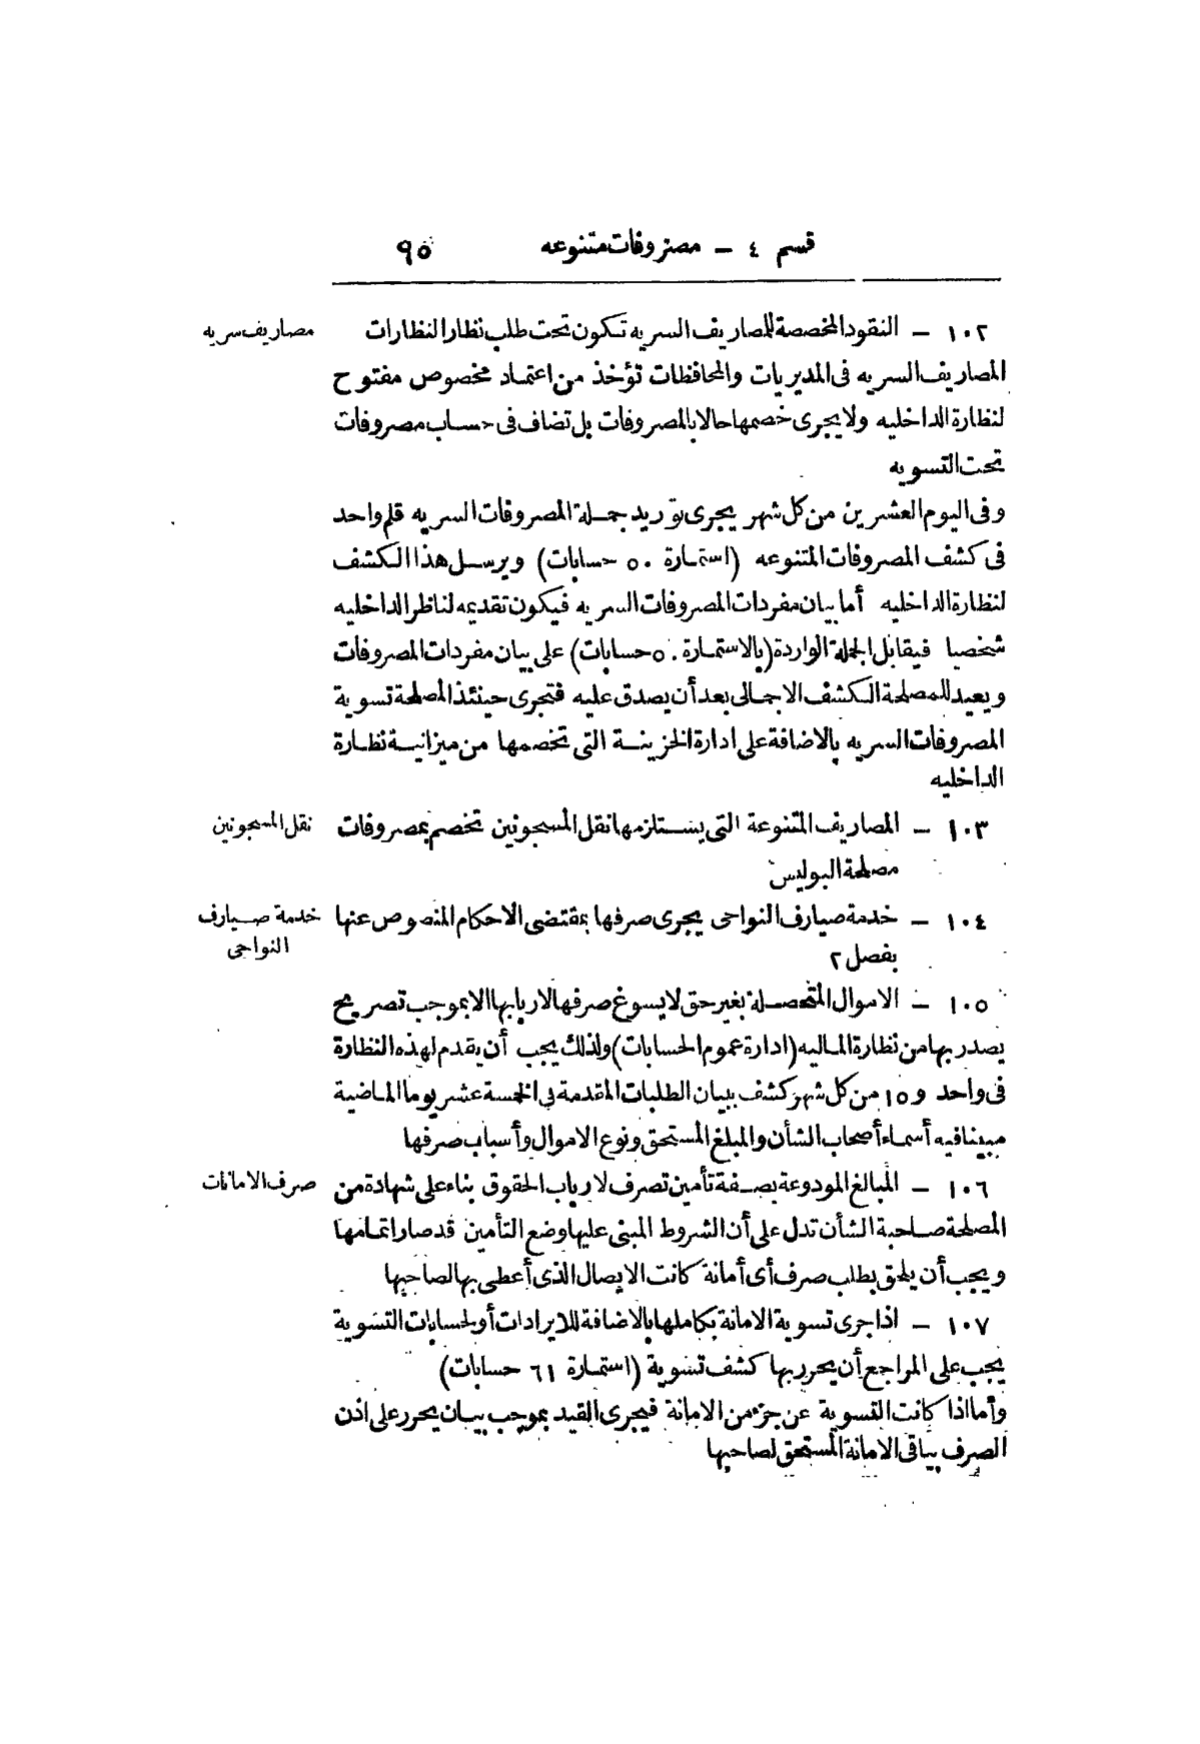 قسم ٤ – مصروفات متنوعه ٩٥
١٠٢ – النقود المخصصة للمصاريف السريه تكون تحت طلب نظار النظارات
مصاريف سريه
المصاريف السريه فى المديريات والمحافظات تؤخذ من اعتماد مخصوص مفتوح
لنظارة الداخليه ولا يجرى خصمها حالا بالمصروفات بل تضاف فى حساب مصروفات
تحت التسويه
وفى اليوم العشرين من كل شهر يجرى توريد جملة المصروفات السريه قلم واحد
فى كشف المصروفات المتنوعه (استمارة ٥٠ حسابات) ويرسل هذا الكشف
لنظارة الداخليه أما بيان مفردات المصروفات السريه فيكون تقديمه لناظر الداخليه
شخصيا فيقابل الجملة الواردة (بالاستمارة ٥٠ حسابات) على بيان مفردات المصروفات
ويعيد للمصلحة الكشف الاجمالى بعد أن يصدق عليه فتجرى حينئذ المصلحة تسوية
المصروفات السريه بالاضافة على ادارة الخزينة التى تخصمها من ميزانية نظارة
الداخليه
١٠٣ – المصاريف المتنوعة التى يستلزمها نقل المسجونين تخصم بمصروفات
نقل المسجونين
مصلحة البوليس
١٠٤ – خدمة صيارف النواحى يجرى صرفها بمقتضى الاحكام المنصوص عنها
خدمة صيارف
النواحى
بفصل ٢
١٠٥ – الاموال المتحصلة بغير حق لا يسوغ صرفها لاربابها الا بموجب تصريح
يصدر بها من نظارة الماليه (ادارة عموم الحسابات) ولذلك يجب أن يقدم لهذه النظارة
فى واحد و ١٥ من كل شهر كشف ببيان الطلبات المقدمة فى الخمسة عشر يوما الماضية
مبينا فيه أسماء أصحاب الشأن والمبلغ المستحق ونوع الاموال وأسباب صرفها
١٠٦ – المبالغ المودوعة بصفة تأمين تصرف لارباب الحقوق بناء على شهادة من
صرف الامانات
المصلحة صاحبة الشأن تدل على أن الشروط المبنى عليها وضع التأمين قد صار اتمامها
ويجب أن يلحق بطلب صرف أى أمانة كانت الايصال الذى أعطى بها لصاحبها
١٠٧ – اذا جرى تسوية الامانة بكاملها بالاضافة للايرادات أو لحسابات التسوية
يجب على المراجع أن يحرر بها كشف تسوية (استمارة ٦١ حسابات)
وأما اذا كانت التسوية عن جزء من الامانة فيجرى القيد بموجب بيان يحرر على اذن
الصرف بباقى الامانة المستحق لصاحبها